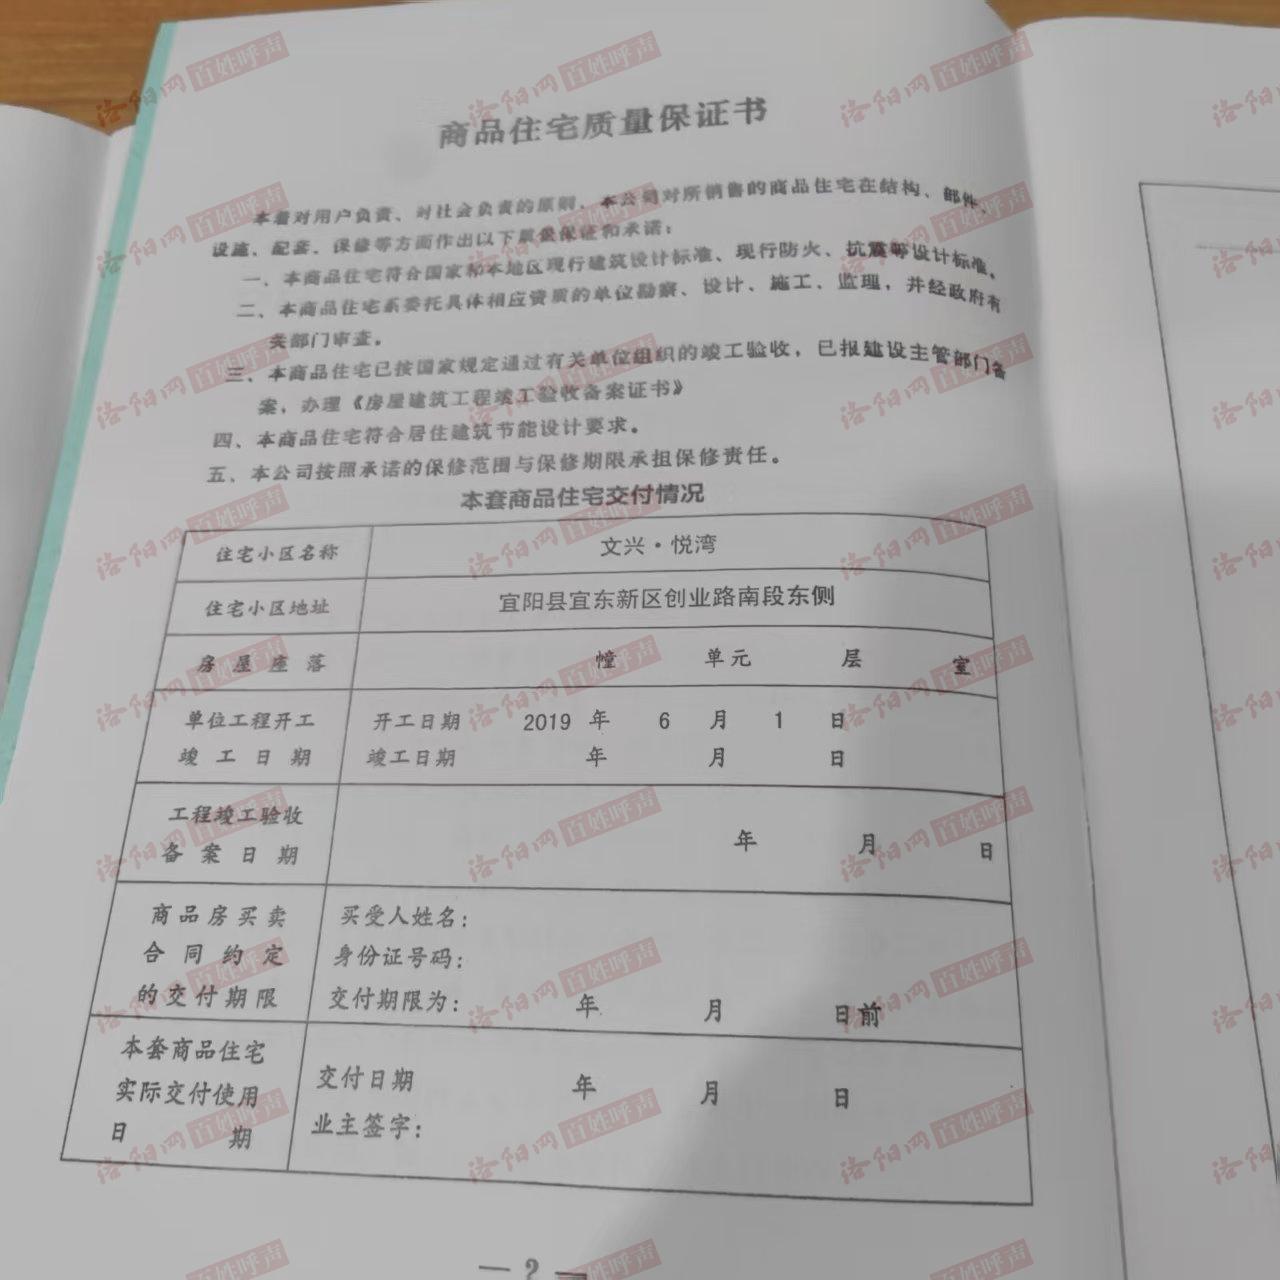 商品住宅质量保证书
本着对用户负责、对社会负责的原则，本公司对所销售的商品住宅在结构、部件、
设施、配套、保修等方面作出以下质量保证和承诺：
一、本商品住宅符合国家和本地区现行建筑设计标准、现行防火、抗震等设计标准。
二、本商品住宅系委托具体相应资质的单位勘察、设计、施工、监理，并经政府有
关部门审查。
三、本商品住宅已按国家规定通过有关单位组织的竣工验收，已报建设主管部门备
案，办理《房屋建筑工程竣工验收备案证书》
四、本商品住宅符合居住建筑节能设计要求。
五、本公司按照承诺的保修范围与保修期限承担保修责任。
本套商品住宅交付情况
住宅小区名称 文兴·悦湾
住宅小区地址 宜阳县宜东新区创业路南段东侧
房屋座落 幢 单元 层 室
单位工程开工 开工日期 2019 年 6 月 1 日
竣工日期 竣工日期 年 月 日
工程竣工验收
备案日期 年 月 日
商品房买卖 买受人姓名：
合同约定 身份证号码：
的交付期限 交付期限为： 年 月 日前
本套商品住宅
实际交付使用 交付日期 年 月 日
日期 业主签字：
— 2 —
洛阳网 百姓呼声